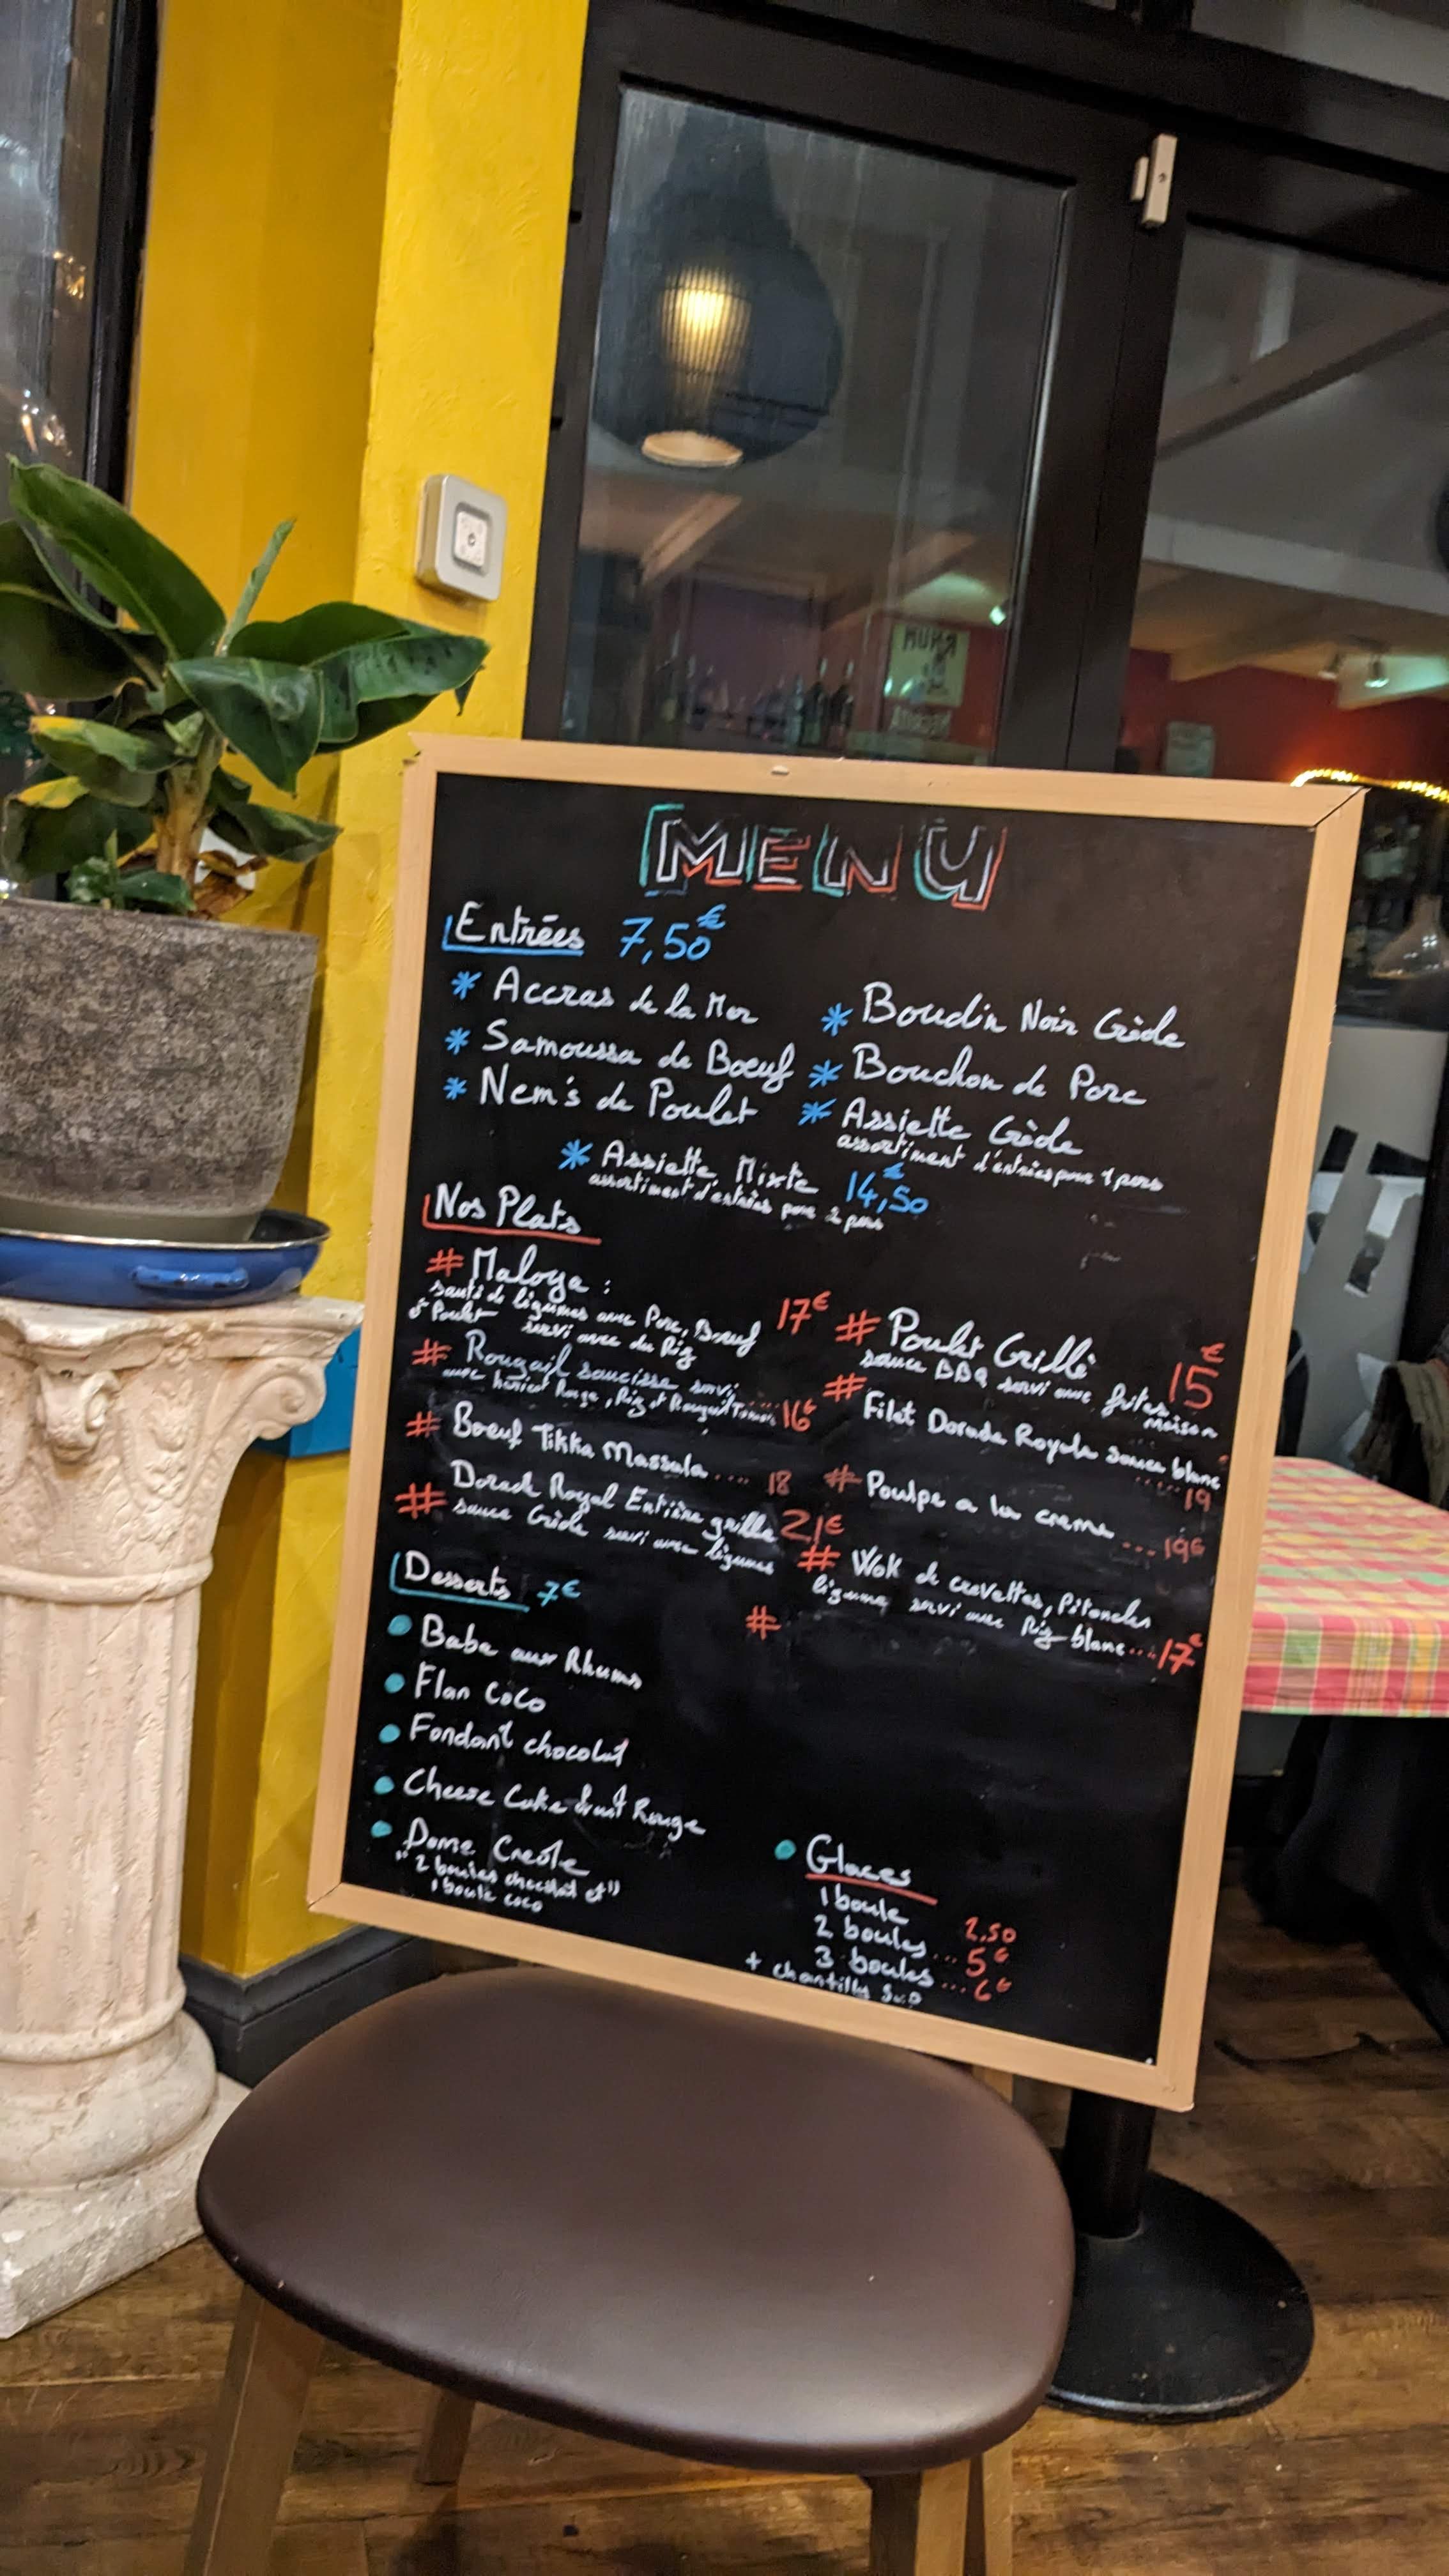 MENU
Entrées 7,50€
* Accras de la Mer
* Samoussa de Boeuf
* Nem's de Poulet
* Boudin Noir Créole
* Bouchon de Porc
* Assiette Créole
assortiment d'entrées pour 1 pers
* Assiette Mixte 14,50€
assortiment d'entrées pour 2 pers
Nos Plats
# Maloya :
sauté de légumes avec Porc, Boeuf 17€
& Poulet servi avec du Riz
# Rougail saucisse servi
avec haricot Rouge, Riz et Rougail Tomate 16€
# Boeuf Tikka Massala .... 18
# Dorade Royal Entière grille 21€
sauce Créole servi avec légumes
# Poulet Grillé 15€
sauce BBQ servi avec frites
maison
# Filet Dorade Royale sauce blanc
..... 19
# Poulpe a la creme ... 19€
# Wok de crevettes, Pétoncles
légume servi avec Riz blanc ... 17€
#
Desserts 7€
Baba aux Rhums
Flan Coco
Fondant chocolat
Cheese Cake fruit Rouge
Dome Creole
"2 boules chocolat et"
1 boule coco
Glaces
1 boule 2,50
2 boules ... 5€
3 boules ... 6€
+ chantilly sup
RHUM